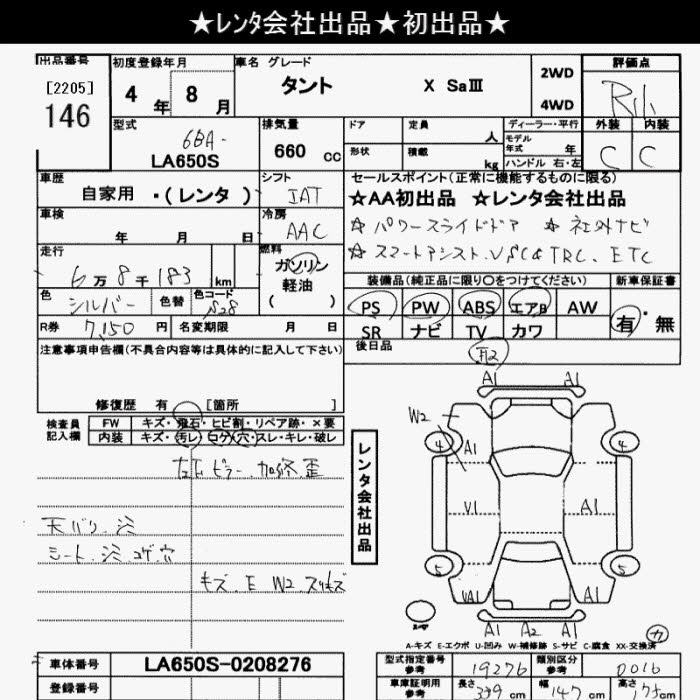 ★レンタ会社出品★初出品★
出品番号 初度登録年月 車名 グレード 評価点
[2205] 146 4年 8月 タント X SaⅢ 2WD 4WD
外装 内装
C C
型式 6BA- LA650S 排気量 660 cc ドア 定員 人 ディーラー・平行
形状 積載 kg モデル年式 年 ハンドル 右・左
車歴 自家用・(レンタ) シフト IAT
セールスポイント(正常に機能するものに限る)
★AA初出品 ★レンタ会社出品
☆ パワースライドドア ☆ 社外ナビ
☆ スマートアシスト、VSC&TRC、ETC
車検 年 月 日 冷房 AAC
走行 6万8千183 km 燃料 ガソリン 軽油 ( )
色 シルバー 色替 色コード S28
装備品(純正品に限り○をつけてください) 新車保証書
PS PW ABS エアB AW 有・無
SR ナビ TV カワ
R券 7,150円 名変期限 月 日
後日品
注意事項申告欄(不具合内容等は具体的に記入して下さい)
修復歴 有 [箇所 ]
検査員記入欄 FW キズ・飛石・ヒビ割・リペア跡・×要
内装 キズ・汚レ・コゲ・穴・スレ・キレ・破レ
天バリ、汚
シート、汚、コゲ穴
キズ、E W2 スリキズ
レンタ会社出品
A1 A1
W2
4 A1 4
V1 A1
5 5
VA1 A1
A1 A2 A1
スペヤ
カ
A-キズ E-エクボ U-凹み W-補修跡 S-サビ C-腐食 XX-交換済
車体番号 LA650S-0208276
型式指定番号参考 19276 類別区分参考 0016
登録番号
車庫証明用参考 長さ 339 cm 幅 147 cm 高さ 175 cm